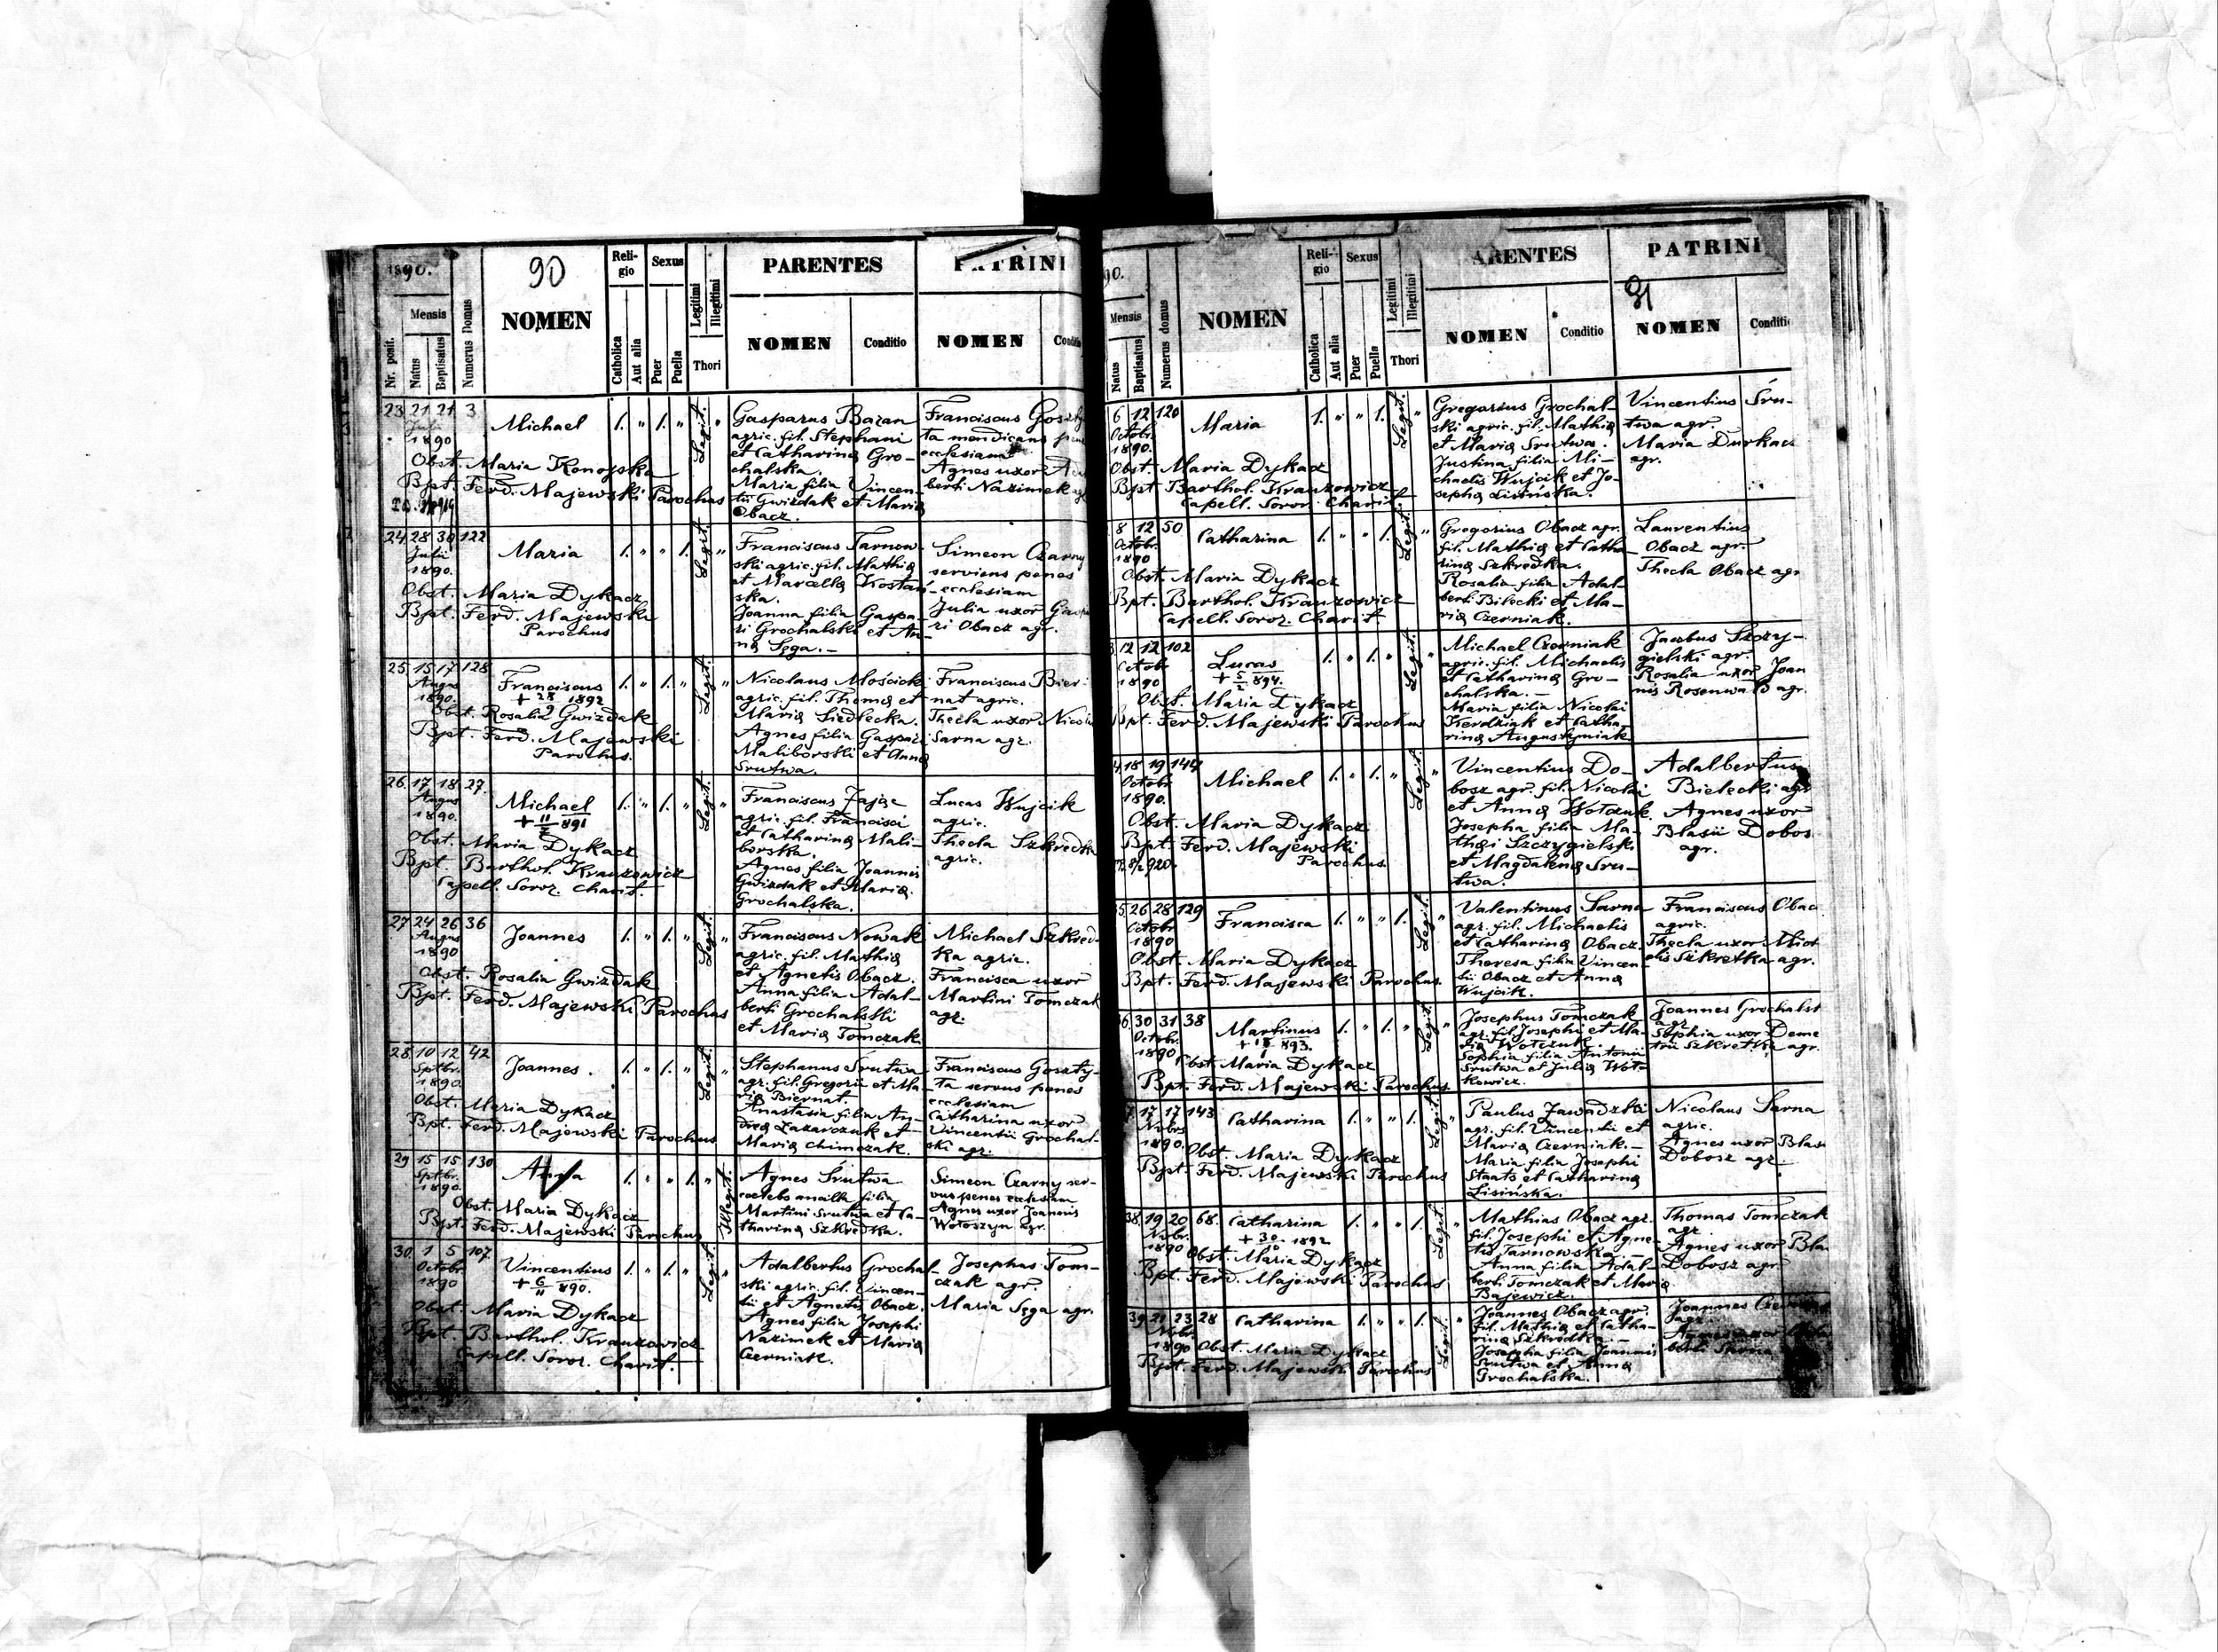 1890.
90
NOMEN
Religio
Sexus
PARENTES
PATRINI
Nr. posit.
Mensis
Natus
Baptisatus
Numerus Domus
Catholica
Aut alia
Puer
Puella
Legitimi
Illegitimi
Thori
NOMEN
Conditio
NOMEN
23 21 21 3
Julii
1890
Michael
1. " 1. "
Legit. "
Obst. Maria Konopska
Bpt. Ferd. Majewski Parochus
Gasparus Baran
agric. fil. Stephani
et Catharinę Gro-
chalska.
Maria filia Vincen-
tii Gwizdak et Marię
Obacz.
Franciscus Goszty
ta mendicans penes
ecclesiam
Agnes uxor Adal
berti Nazimek
24 28 30 122
Julii
1890.
Maria
1. " " 1.
Legit. "
Obst. Maria Dykacz
Bpt. Ferd. Majewski
Parochus
Franciscus Tarnow-
ski agric. fil. Mathię
et Marcellę Kostań-
ska.
Joanna filia Gaspa-
ri Grochalski et An-
nę Sęga. —
Simeon Czarny
serviens penes
ecclesiam
Julia uxor Gaspa
ri Obacz agr.
25. 15 17 128
Augus
1890.
Franciscus
1. " 1. "
Legit. "
Obst. Rosalia Gwizdak
Bpt. Ferd. Majewski
Parochus.
Nicolaus Mościck
agric. fil. Thomę et
Marię Siedlecka.
Agnes filia Gaspari
Maliborski et Annę
Srutwa.
Franciscus Bier
nat agric.
Thecla uxor Nicola
Sarna agr.
26. 17 18 27.
Augus
1890.
Michael
+ 11/7 891
1. " 1. "
Legit. "
Obst. Maria Dykacz
Bpt. Barthol. Krauzowicz
Capell. Soror. Charit.
Franciscus Zając
agric. fil. Francisci
et Catharinę Mali-
borska.
Agnes filia Joannis
Gwizdak et Marię
Grochalska.
Lucas Wujcik
agric.
Thecla Szkredka
agric.
27 24 26 36
Augus
1890
Joannes
1. " 1. "
Legit. "
Obst. Rosalia Gwizdak
Bpt. Ferd. Majewski Parochus
Franciscus Nowak
agric. fil. Mathię
et Agnetis Obacz.
Anna filia Adal-
berti Grochalski
et Marię Tomczak
Michael Szkred-
ka agric.
Francisca uxor
Martini Tomczak
agr.
28. 10 12 42
Sptbr.
1890.
Joannes.
1. " 1. "
Legit. "
Obst. Maria Dykacz
Bpt. Ferd. Majewski Parochus
Stephanus Srutwa
agr. fil. Gregorii et Ma-
rię Biernat.
Anastasia filia An-
dreę Łazarczuk et
Marię Chimczak.
Franciscus Goszty-
ta servus penes
ecclesiam
Catharina uxor
Vincentii Grochal-
ski agr.
29 15 15 130
Sptbr.
1890.
Anna
1. " " 1.
Illegit.
Obst. Maria Dykacz
Bpt. Ferd. Majewski Parochus
Agnes Śrutwa
coelebs ancilla filia
Martini Srutwa et Ca-
tharinę Szkredka.
Simeon Czarny ser-
vus penes ecclesiam
Agnes uxor Joannis
Wołoszyn agr.
30. 1 5 107
Octobr.
1890
Vincentius
+ 6/11 890.
1. " 1. "
Legit. "
Obst. Maria Dykacz
Bpt. Barthol. Krauzowicz
Capell. Soror. Charit.
Adalbertus Grochal-
ski agric. fil. Vincen-
tii et Agnetis Obacz.
Agnes filia Josephi
Nazimek et Marię
Czerniak.
Josephus Tom-
czak agr.
Maria Sęga agr.
90.
Mensis
Natus
Baptisatus
Numerus domus
NOMEN
Religio
Sexus
Catholica
Aut alia
Puer
Puella
Legitimi
Illegitimi
Thori
ARENTES
PATRINI
91
NOMEN
Conditio
NOMEN
6 12 120
Octobr.
1890.
Maria
1. " " 1.
Legit. "
Obst. Maria Dykacz
Bpt Barthol. Krauzowicz
Capell. Soror. Charit
Gregorius Grochal-
ski agric. fil. Mathię
et Marię Srutwa.
Justina filia Mi-
chaelis Wujcik et Jo-
sephę Lisińska.
Vincentius Śru-
twa agr.
Maria Durkacz
agr.
8 12 50
Octobr.
1890
Catharina
1. " " 1.
Legit. "
Obst. Maria Dykacz
Bpt. Barthol. Krauzowicz
Capell. Soror. Charit
Gregorius Obacz agr.
fil. Mathię et Catha-
rinę Szkredka.
Rosalia filia Adal-
berti Bilecki et Ma-
rię Czerniak.
Laurentius
Obacz agr.
Thecla Obacz agr
12 12 102
Octobr
1890
Lucas
+ 5/2 894.
1. " 1. "
Legit. "
Obst. Maria Dykacz
Bpt. Ferd. Majewski Parochus
Michael Czerniak
agric. fil. Michaelis
et Catharinę Gro-
chalska. —
Maria filia Nicolai
Kerdziak et Catha-
rinę Augustyniak
Jacobus Szczy-
gielski agr.
Rosalia uxor Joan
nis Rosenwald agr.
18 19 144
Octobr
1890.
Michael
1. " 1. "
Legit. "
Obst. Maria Dykacz
Bpt. Ferd. Majewski
Parochus.
Vincentius Do-
bosz agr. fil. Nicolai
et Annę Wołczuk.
Josepha filia Ma-
thęi Szczygielski
et Magdalenę Sru-
twa.
Adalbertus
Bielecki agr
Agnes uxor
Blasii Dobos
agr.
35 26 28 129
Octobr
1890
Francisca
1. " " 1.
Legit. "
Obst. Maria Dykacz
Bpt. Ferd. Majewski Parochus.
Valentinus Sarna
agr. fil. Michaelis
et Catharinę Obacz.
Theresa filia Vincen-
tii Obacz et Annę
Wujcik.
Franciscus Obac
agric.
Thecla uxor Mich
elis Szkretka agr.
36 30 31 38
Octobr.
1890
Martinus
1. " 1. "
Legit. "
Obst. Maria Dykacz
Bpt. Ferd. Majewski Parochus.
Josephus Tomczak
agr. fil. Josephi et Ma-
rię Wołczuk.
Sophia filia Antonii
Srutwa et Julię Woł-
kowicz.
Joannes Grochalst
agr.
Sophia uxor Deme
trii Szkretka agr.
17 17 143
Nvbr.
1890.
Catharina
1. " " 1.
Legit. "
Obst. Maria Dykacz
Bpt. Ferd. Majewski Parochus
Paulus Zawadzki
agr. fil. Vincentii et
Marię Czerniak. —
Maria filia Josephi
Staats et Catharinę
Lisińska.
Nicolaus Sarna
agric.
Agnes uxor Blas
Dobosz agr.
38. 19 20 68.
Nvbr.
1890
Catharina
1. " " 1.
Legit. "
Obst. Maria Dykacz
Bpt. Ferd. Majewski Parochus
Mathias Obacz agr.
fil. Josephi et Agne-
tis Tarnowska.
Anna filia Adal-
berti Tomczak et Marię
Bajewicz.
Thomas Tomczak
agr.
Agnes uxor Bla
Dobosz agr
39 21 23 28
Nvbr.
1890
Catharina
1. " " 1.
Legit. "
Obst. Maria Dykacz
Bpt. Ferd. Majewski Parochus
Joannes Obacz agr.
fil. Mathię et Catha-
rinę Szkredka. —
Josepha filia Joannis
Srutwa et Annę
Grochalska.
Joannes
agr.